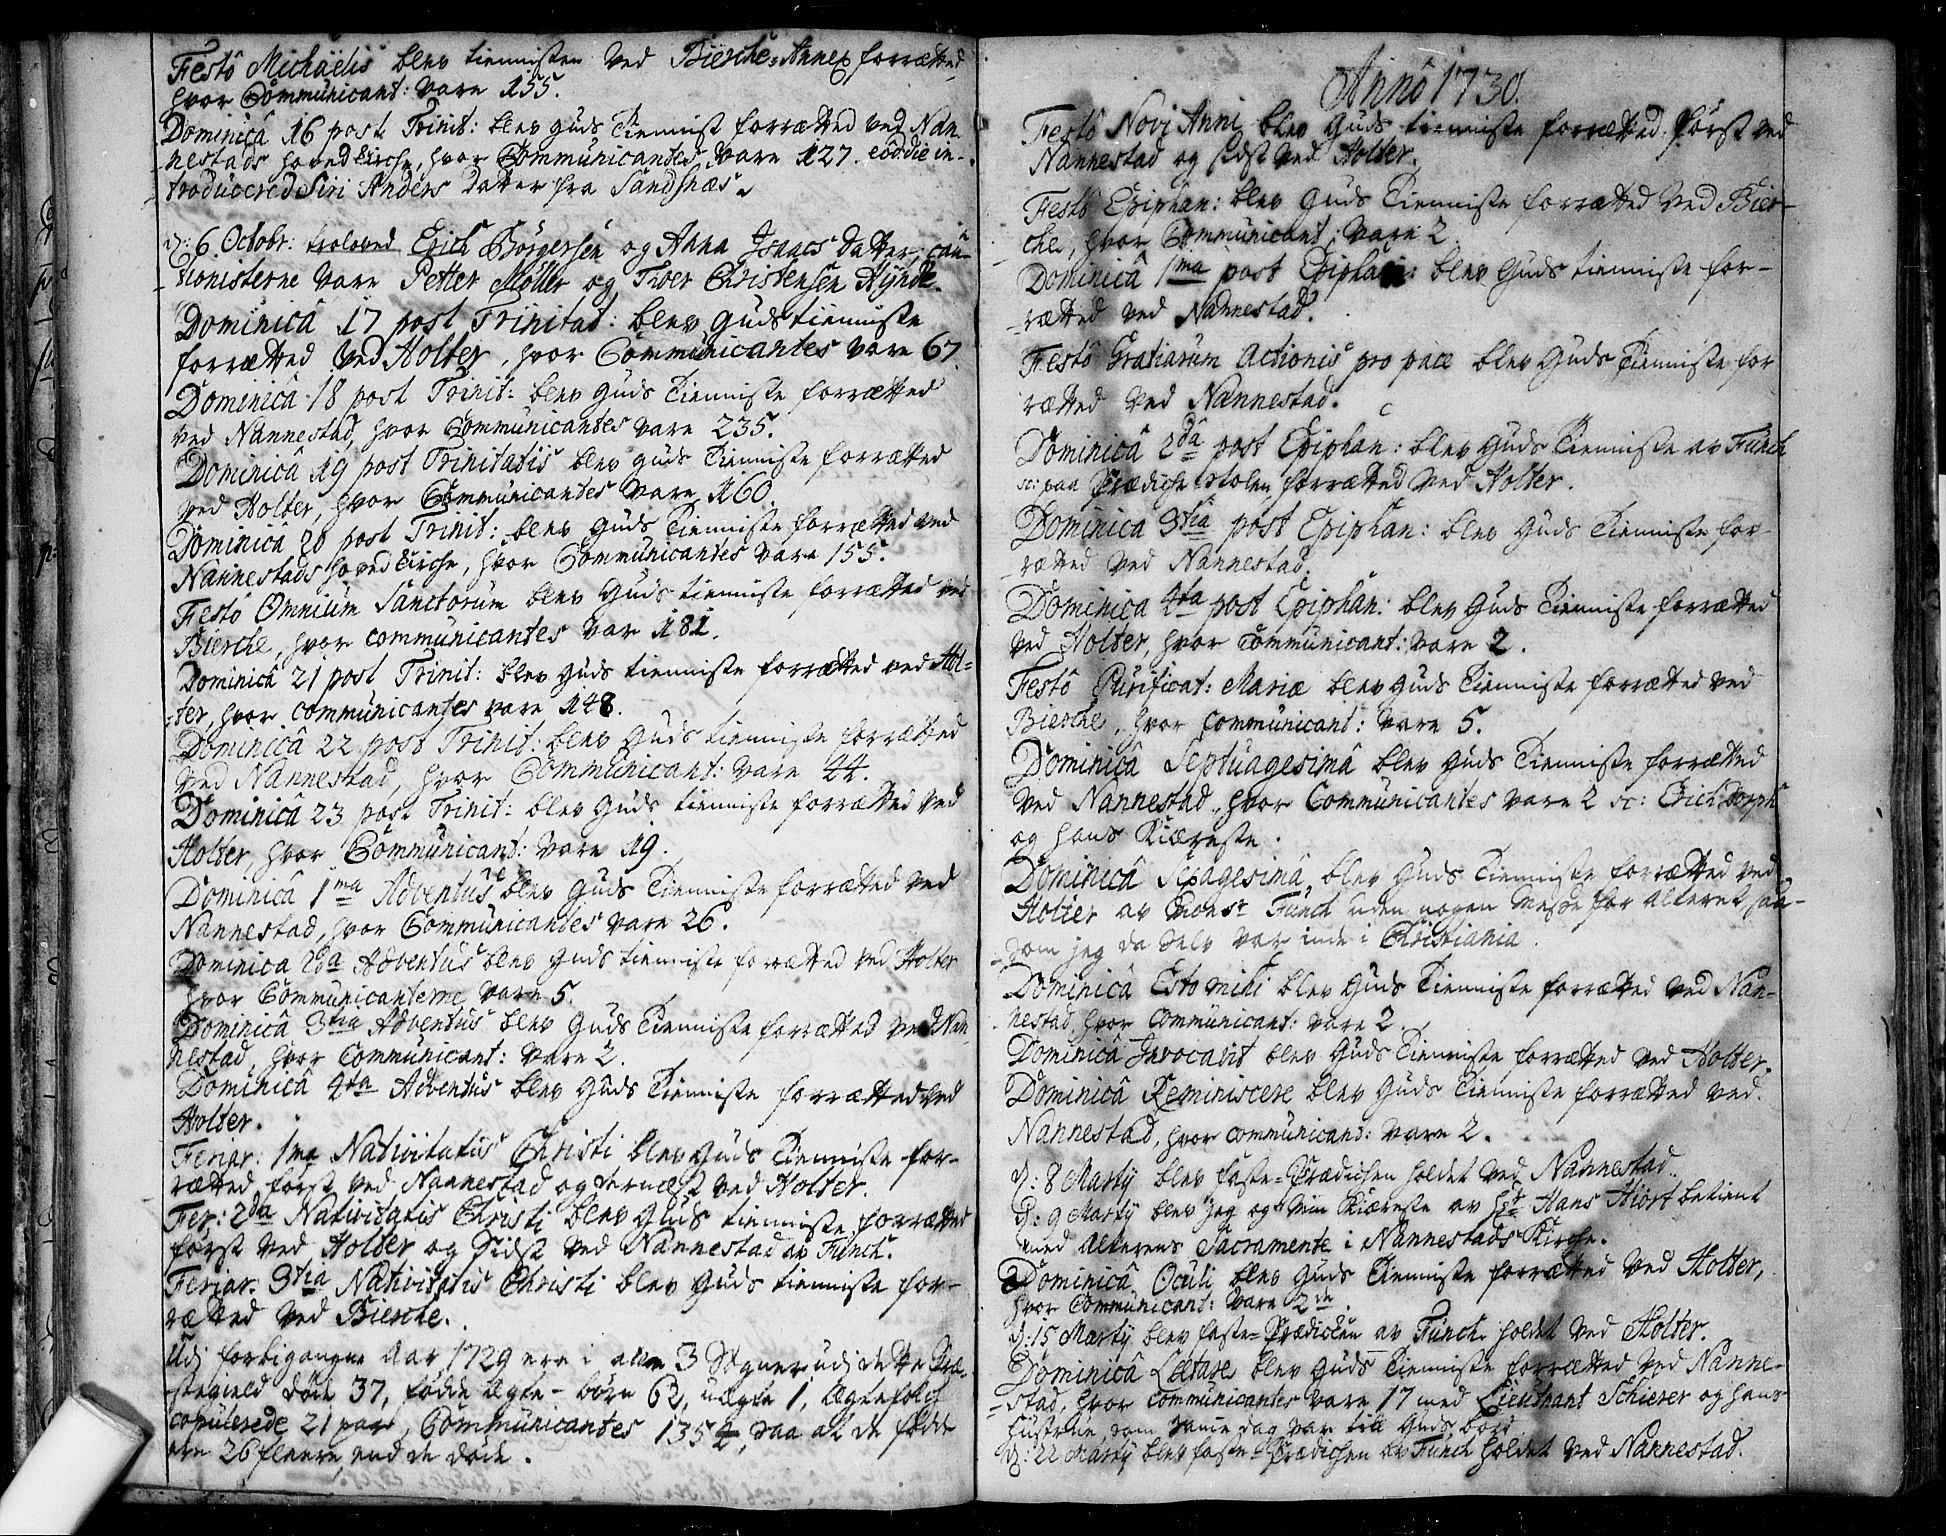 Festô Michaëlis blev tiennisten ved Biercke-Annex forrætted,
hvor Communicant: vare 155.
Dominicâ 16 post Trinit: blev Guds Tienniste forrætted ved Nan-
nestads hoved kirche, hvor Communicantes vare 127. eôdie in-
troducered Siri Anders datter fra Sandsnæs.
d: 6 Octobr: troloved Erich Börgersen og Anna Isaacs datter, cau-
tionisterne vare Petter Möller og Thoer Christensen
Dominicâ 17 post Trinitat: blev Guds tienniste
forrætted ved Holter, hvor Communicantes vare 67.
Dominicâ 18 post Trinit: blev Guds Tienniste forrætted
ved Nannestad, hvor Communicantes vare 235.
Dominicâ 19 post Trinitatis blev Guds Tienniste forrætted
ved Holter, hvor Communicantes vare 160.
Dominicâ 20 post Trinit: blev Guds Tienniste forrætted ved
Nannestads hoved kirche, hvor Communicantes vare 155.
Festô Omnium Sanctorum blev Guds tienniste forrætted ved
Bierche, hvor communicantes var 181.
Dominicâ 21 post Trinit: blev Guds tienniste forrætted ved Hol-
ter, hvor communicantes vare 148.
Dominicâ 22 post Trinit: blev Guds tienniste forrætted
ved Nannestad, hvor Communicant: vare 44.
Dominicâ 23 post Trinit: blev Guds tienniste forrætted ved
Holter, hvor Communicant: vare 19.
Dominicâ 1ma Adventus blev Guds Tienniste forrætted ved
Nannestad, hvor Communicantes vare 26.
Dominica 2da Adventus blev Guds tienniste forrætted ved Holter
hvor Communicanterne vare 5.
Dominicâ 3tia Adventus blev Guds Tienniste forrætted ved Nan
nestad, hvor Communicant: vare 2.
Dominicâ 4ta Adventus blev Guds Tienniste forrætted ved
Holter.
Feriar: 1ma Nativitatis Christi blev Guds Tienniste for-
rætted først ved Nannestad og dernæst ved Holter.
Fer: 2da Nativitatis Christi blev Guds tienniste forrætted
først ved Holter og sidst ved Nannestad av Funch.
Feriar. 3tia Nativitatis Christi blev Guds tienniste for-
rætted ved Bierche.
Udi forbigangne Aar 1729 ere i alle 3 Sogner udi dette Præ-
stegield døde 37, fødde ægte-børn 62, uægte 1, Ægtefolch
copulerede 21 par, Communicantes 1354, saa at de fødde
ere 26 fleere, end de døde.
Annô 1730.
Festô Novi Anni blev Guds tienniste forrætted først ved
Nannestad og sidst ved Holter.
Festô Epiphan: blev Guds Tienniste forrætted ved Bier-
che, hvor Communicant: vare 2.
Dominicâ 1ma post Epiphan: blev Guds tienniste for-
rætted ved Nannestad.
Festô Gratiarum Actionis pro pace blev Guds Tienniste for
rætted ved Nannestad.
Dominicâ 2dâ post Epiphan: blev Guds Tienniste av Funch
sc: paa Prædiche stolen forrætted ved Holter.
Dominica 3tiâ post Epiphan: blev Guds Tienniste for-
rætted ved Nannestad.
Dominica 4ta post Epiphan: blev Guds Tienniste forrætted
ved Holter, hvor communicant: vare 2.
Festô Purificat: Mariæ blev Guds Tienniste forrætted ved
Bierche, hvor communicant: vare 5.
Dominicâ Septuagesimâ blev Guds Tienniste forrætted
ved Nannestad, hvor Communicantes vare 2 sc: Erich Dorph
og hans Kiæreste.
Dominicâ Sexagesimâ, blev Guds Tienniste forrætted ved
Holter av Monsr Funch uden nogen Messe for Alteret, saa-
som jeg da selv var inde i Christiania.
Dominicâ Esto mihi blev Guds Tienniste forrætted ved Nan-
nestad, hvor communicant: vare 2.
Dominicâ Invocavit blev Guds Tienniste forrætted ved Holter.
Dominicâ Reminiscere blev Guds Tienniste forrætted ved
Nannestad, hvor communicant: vare 2.
d: 8 Martij blev faste-Prædichen holdet ved Nannestad.
d: 9 Martij blev jeg og min Kiæreste av Hr Hans Hiort betient
med Alterens Sacramente i Nannestads Kirche.
Dominicâ Oculi blev Guds Tienniste forrætted ved Holter,
hvor Communicant: vare 2de.
d: 15 Martij blev faste-Prædichen av Funch holdet ved Holter.
Dominicâ Lætare blev Guds Tienniste forrætted ved Nanne-
stad, hvor communicantes vare 17 med Lieutnant Schierer og hans
Fustrue, som samme dag var till Guds bord.
d: 22 Martij blev faste-Prædichen av Funch holdet ved Nannestad.